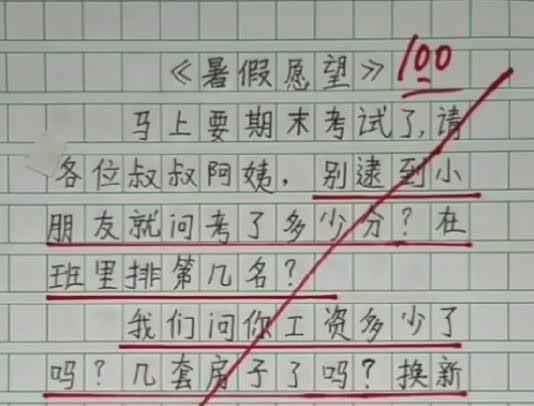 《暑假愿望》 100
马上要期末考试了,请
各位叔叔阿姨,别逮到小
朋友就问考了多少分?在
班里排第几名?
我们问你工资多少了
吗?几套房子了吗?换新